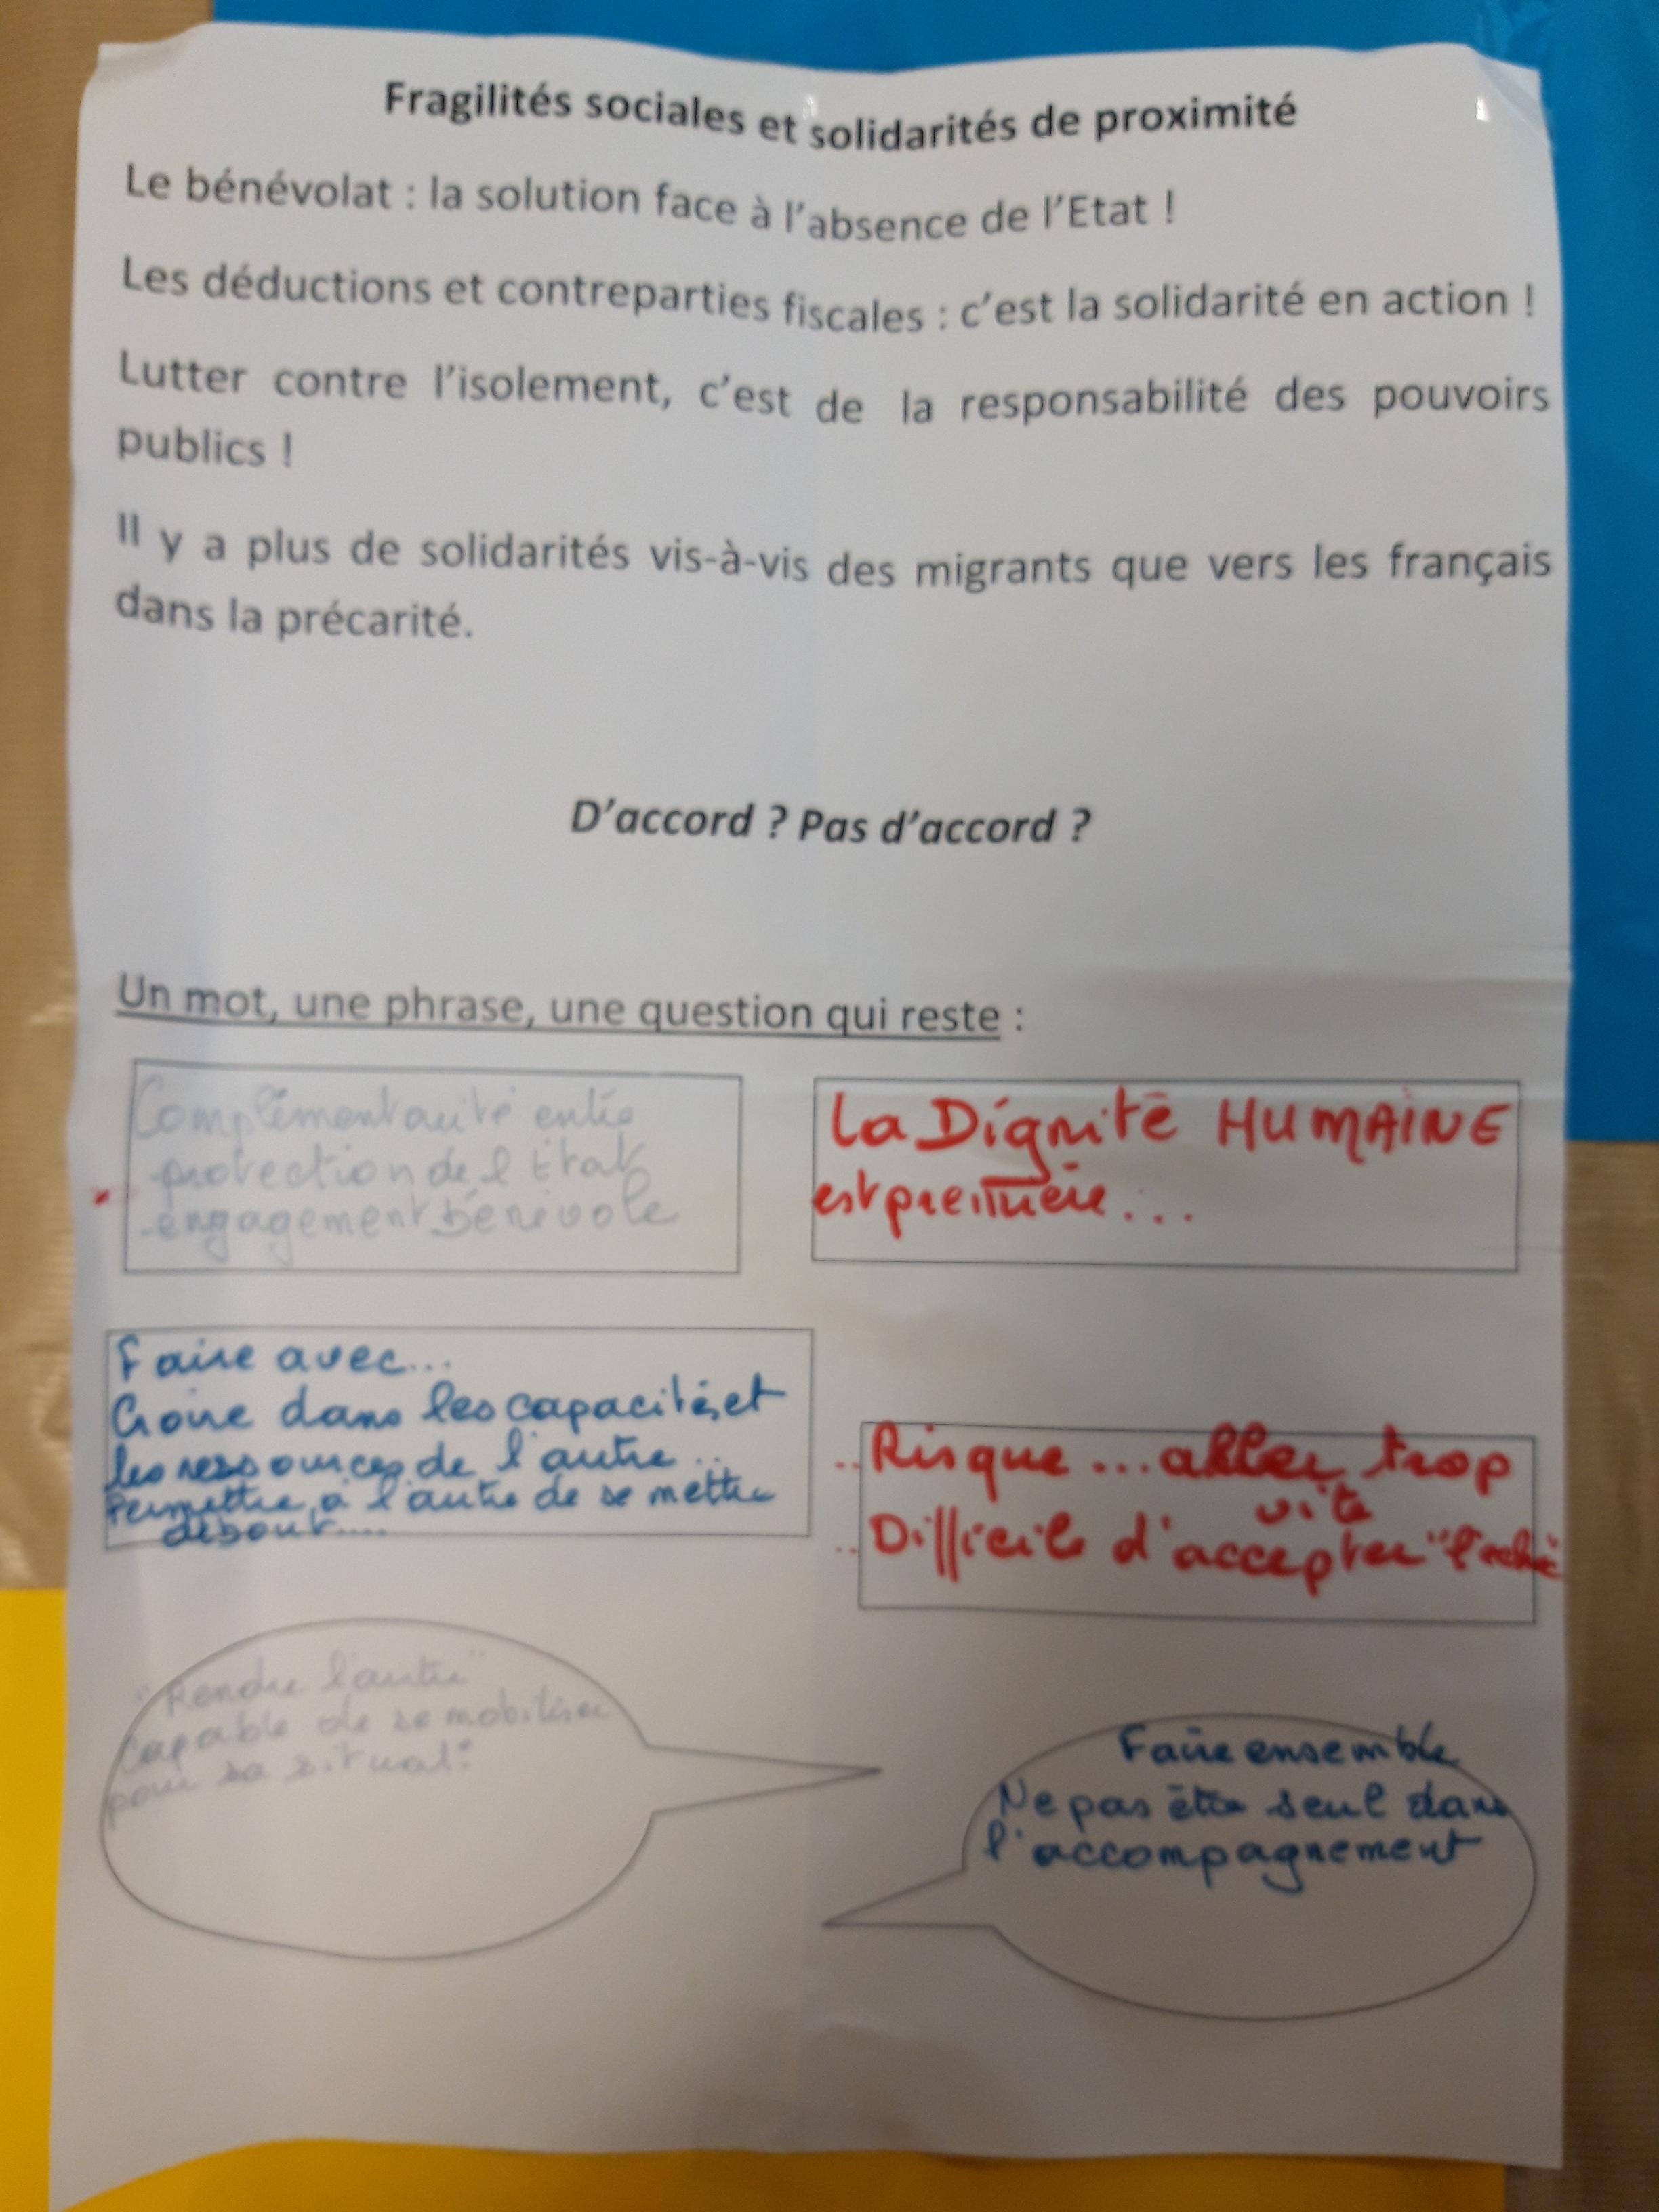 Fragilités sociales et solidarités de proximité
Le bénévolat : la solution face à l'absence de l'Etat !
Les déductions et contreparties fiscales : c'est la solidarité en action !
Lutter contre l'isolement, c'est de la responsabilité des pouvoirs
publics !
Il y a plus de solidarités vis-à-vis des migrants que vers les français
dans la précarité.
D'accord ? Pas d'accord ?
Un mot, une phrase, une question qui reste :
Complémentarité entre
protection de l'Etat
engagement bénévole
La Dignité HUMAINE
est première...
Faire avec...
Croire dans les capacités et
les ressources de l'autre..
Permettre à l'autre de se mettre
debout....
..Risque ... aller trop
vite
..Difficile d'accepter
"Rendre l'autre"
capable de se mobiliser
pour sa situat°
Faire ensemble
Ne pas être seul dans
l'accompagnement